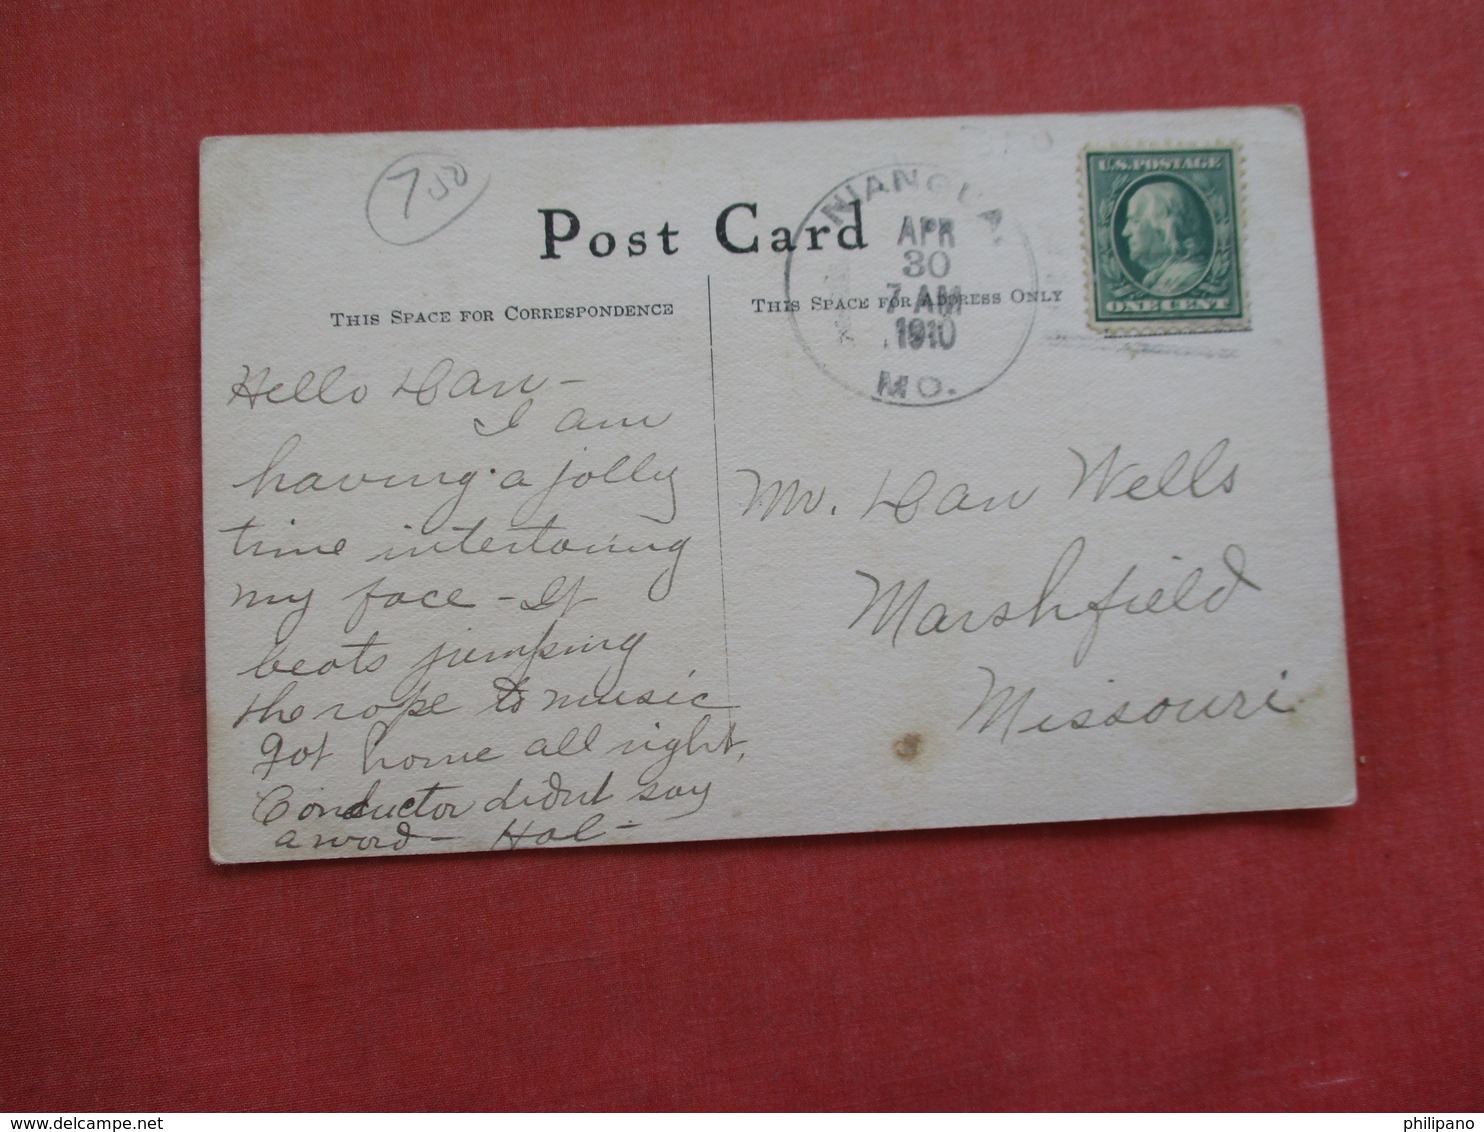 7 50
NIANGUA
APR
30
7 AM
1910
MO.
U.S. POSTAGE
ONE CENT
Post Card
THIS SPACE FOR CORRESPONDENCE
THIS SPACE FOR ADDRESS ONLY
Hello Dan -
I am
having a jolly
time
my face - It
beats jumping
the rope to music
got home all right,
Conductor didnt say
a word - Hal -
Mr. Dan Wells
Marshfield
Missouri
philipano